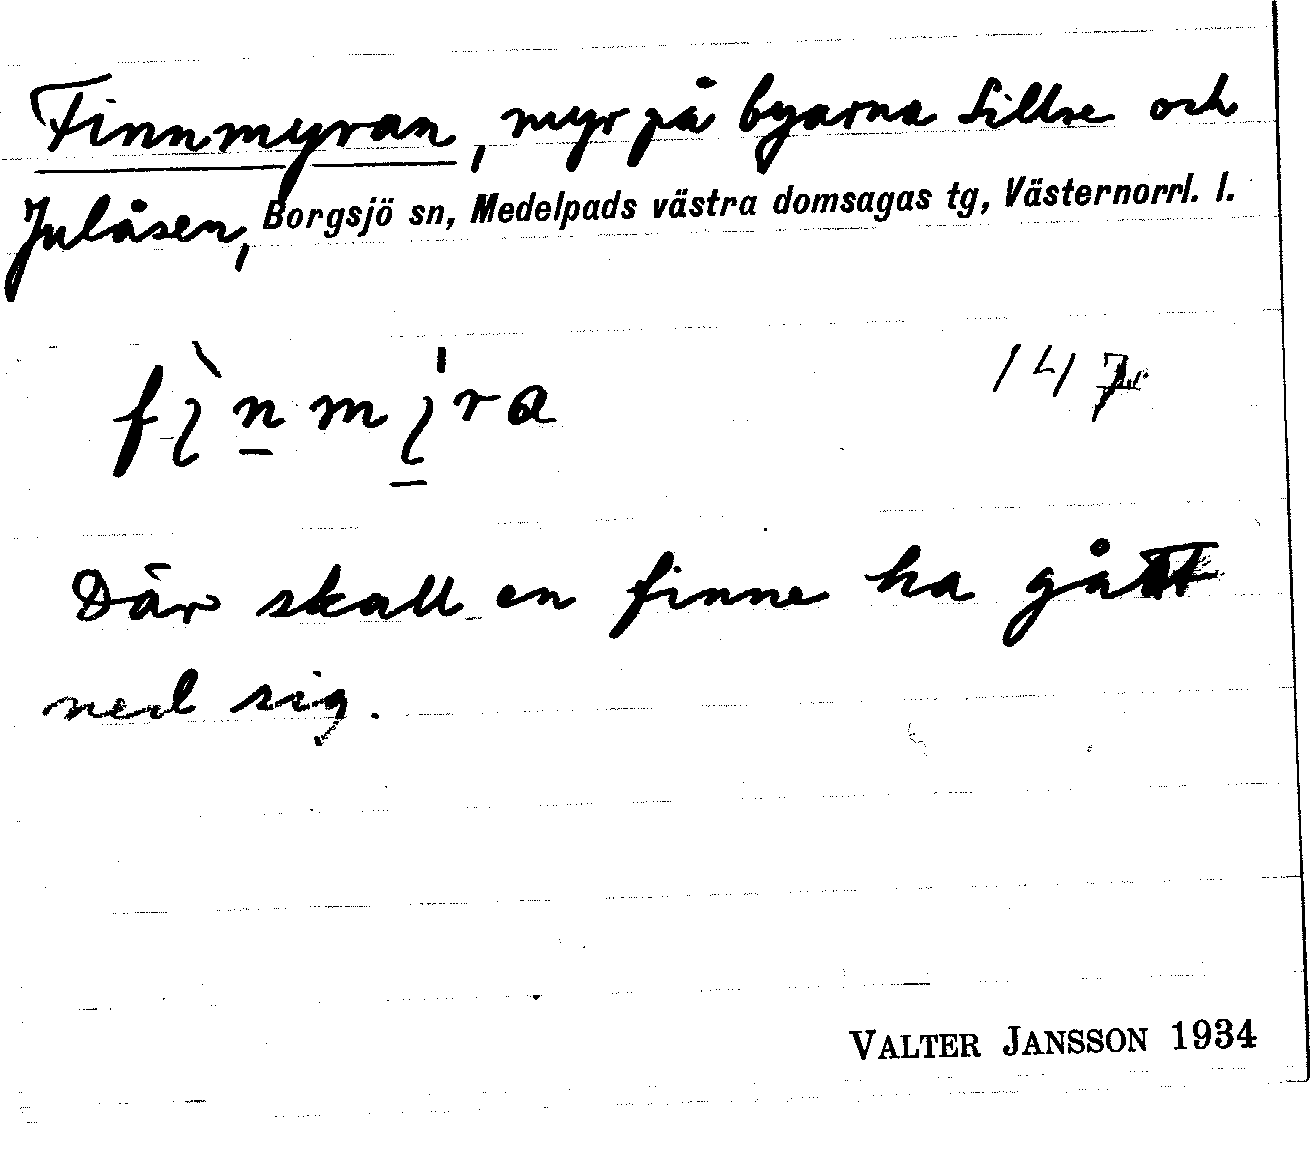 Finnmyran, myr på byarna Sillre och
Julåsen, Borgsjö sn, Medelpads västra domsagas tg, Västernorrl. l.
147
Där skall en finne ha gått
ned sig.
VALTER JANSSON 1934